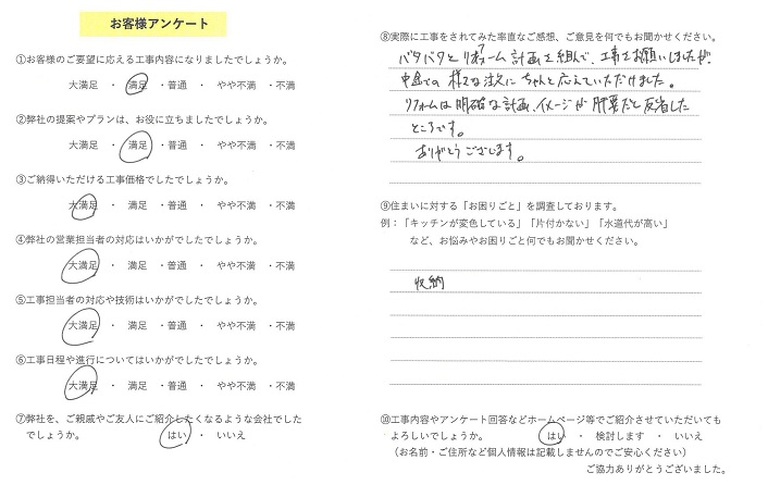 お客様アンケート
①お客様のご要望に応える工事内容になりましたでしょうか。
大満足 ・ 満足 ・普通 ・ やや不満 ・不満
②弊社の提案やプランは、お役に立ちましたでしょうか。
大満足 ・ 満足 ・普通 ・ やや不満 ・不満
③ご納得いただける工事価格でしたでしょうか。
大満足 ・ 満足 ・普通 ・ やや不満 ・不満
④弊社の営業担当者の対応はいかがでしたでしょうか。
大満足 ・ 満足 ・普通 ・ やや不満 ・不満
⑤工事担当者の対応や技術はいかがでしたでしょうか。
大満足 ・ 満足 ・普通 ・ やや不満 ・不満
⑥工事日程や進行についてはいかがでしたでしょうか。
大満足 ・ 満足 ・普通 ・ やや不満 ・不満
⑦弊社を、ご親戚やご友人にご紹介したくなるような会社でした
でしょうか。 はい ・ いいえ
⑧実際に工事をされてみた率直なご感想、ご意見を何でもお聞かせください。
バタバタとリフォーム計画を組んで、工事をお願いしましたが、
中途での様々な注文にちゃんと応えていただけました。
リフォームは明確な計画、イメージが肝要だと反省した
ところです。
ありがとうございます。
⑨住まいに対する「お困りごと」を調査しております。
例：「キッチンが変色している」「片付かない」「水道代が高い」
など、お悩みやお困りごと何でもお聞かせください。
収納
⑩工事内容やアンケート回答などホームページ等でご紹介させていただいても
よろしいでしょうか。 はい ・ 検討します ・ いいえ
（お名前・ご住所など個人情報は記載しませんのでご安心ください）
ご協力ありがとうございました。